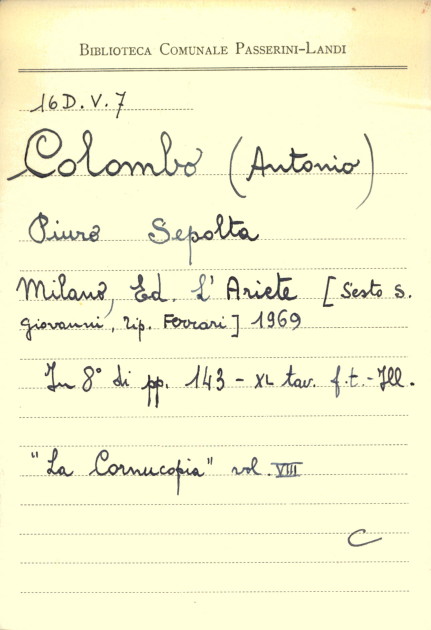 BIBLIOTECA COMUNALE PASSERINI-LANDI
16 D. V. 7
Colombo (Antonio)
Piuro Sepolta
Milano, Ed. L'Ariete [Sesto S.
Giovanni, Tip. Ferrari] 1969
In 8° di pp. 143 - XL tav. f.t. - Ill.
"La Cornucopia" vol. VIII
C